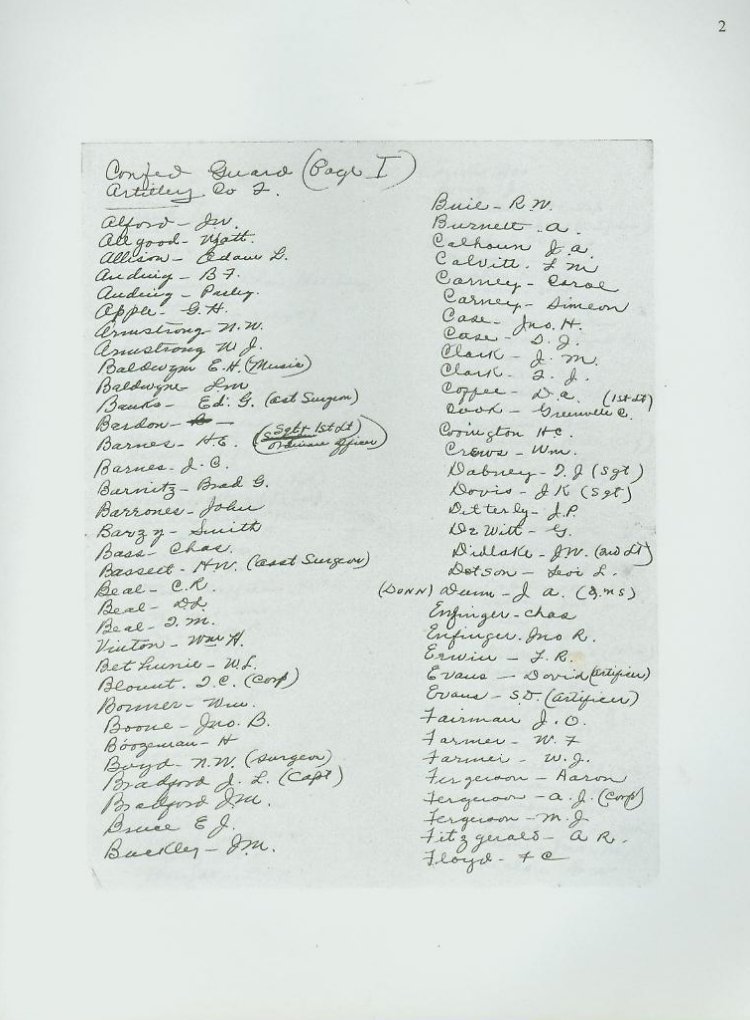 2
Confed Guard (Page I)
Artillery Co F.
Alford - Jw.
Allgood - Wyatt.
Allison - Adam L.
Anding - B F.
Anding - Pasley.
Apple - G. H.
Armstrong - N. W.
Armstrong W J.
Baldwyn E. H. (Music)
Baldwyne Lm
Banks - Ed. G. (Asst Surgeon)
Bardon -
Barnes - H. E. (Sgt & 1st Lt
Ordinance Officer)
Barnes - J. C.
Barnitz - Brad G.
Barrones - John
Barzy - Smith
Bass - Chas.
Bassett - HW. (Asst Surgeon)
Beal - C. R.
Beal - DL
Beal - T. M.
Vinton - Wm H.
Bethunie - W L.
Blount. T. C. (Corp)
Bonner - Wm.
Boone - Jno. B.
Boozeman - H
Boyd - N. W. (Surgeon)
Bradford J. L. (Capt)
Bradford J m.
Bruce E J.
Buckley - J M.
Buie - R. W.
Burnett. A.
Calhoun J. A.
Calvitt. F M
Carney - Carol
Carney - Simeon
Case - Jno. H.
Case - D. J.
Clark - J. M.
Clark - F. J.
Coffee - D. A. (1st Lt)
Cook - Greenville C.
Covington HC.
Crews - Wm.
Dabney - T. J (Sgt)
Davis - J K (Sgt)
Ditterly - J. P.
De Witt - G.
Didlake - JW. (2nd Lt)
Dotson - Levi L.
(DONN) Dunn - J A. (Q. M S)
Enfinger - Chas
Enfinger. Jno R.
Erwin - F. R.
Evans - David (Artificer)
Evans - S. D. (Artificer)
Fairman J. O.
Farmer - W. F
Farmer - W. J.
Ferguson - Aaron
Ferguson - A. J. (Corp)
Ferguson - M. J
Fitzgerald - A R.
Floyd - F C